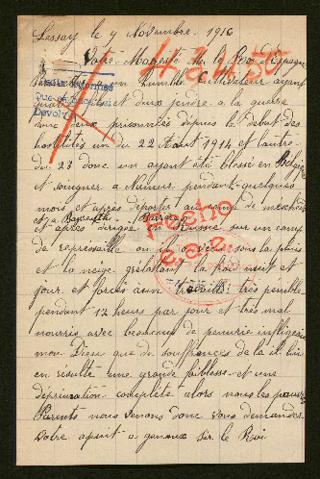 Lessay le 7 Novembre. 1916
Votre Majesté le Roi d'Espagne
43450
humble Cultivateur ayant
quatre fils et deux gendre a la guerre
donc deux prisonniés depuis le debut des
hostilités un du 22 Août 1914 et l'autre
du 23 donc un ayant été blessé en Belgique
et soigner a Namur pendant quelques
mois et après deporter au camp de
et après dirigée en Russie sur un camp
de represaille ou il vecu sous la pluie
et la neige grelottant la froid nuit et
jour et forcés a un travail très penible
pendant 12 heurs par jour et très mal
nourris avec beaucoup de penurie infligées
mon Dieu que de souffrances de la il lui
en résulte une grande faiblesse et une
dépression complète alors nous les pauvres
Parents nous venons donc vous demander
votre apuit a genoux Sir le Roi
Fecho